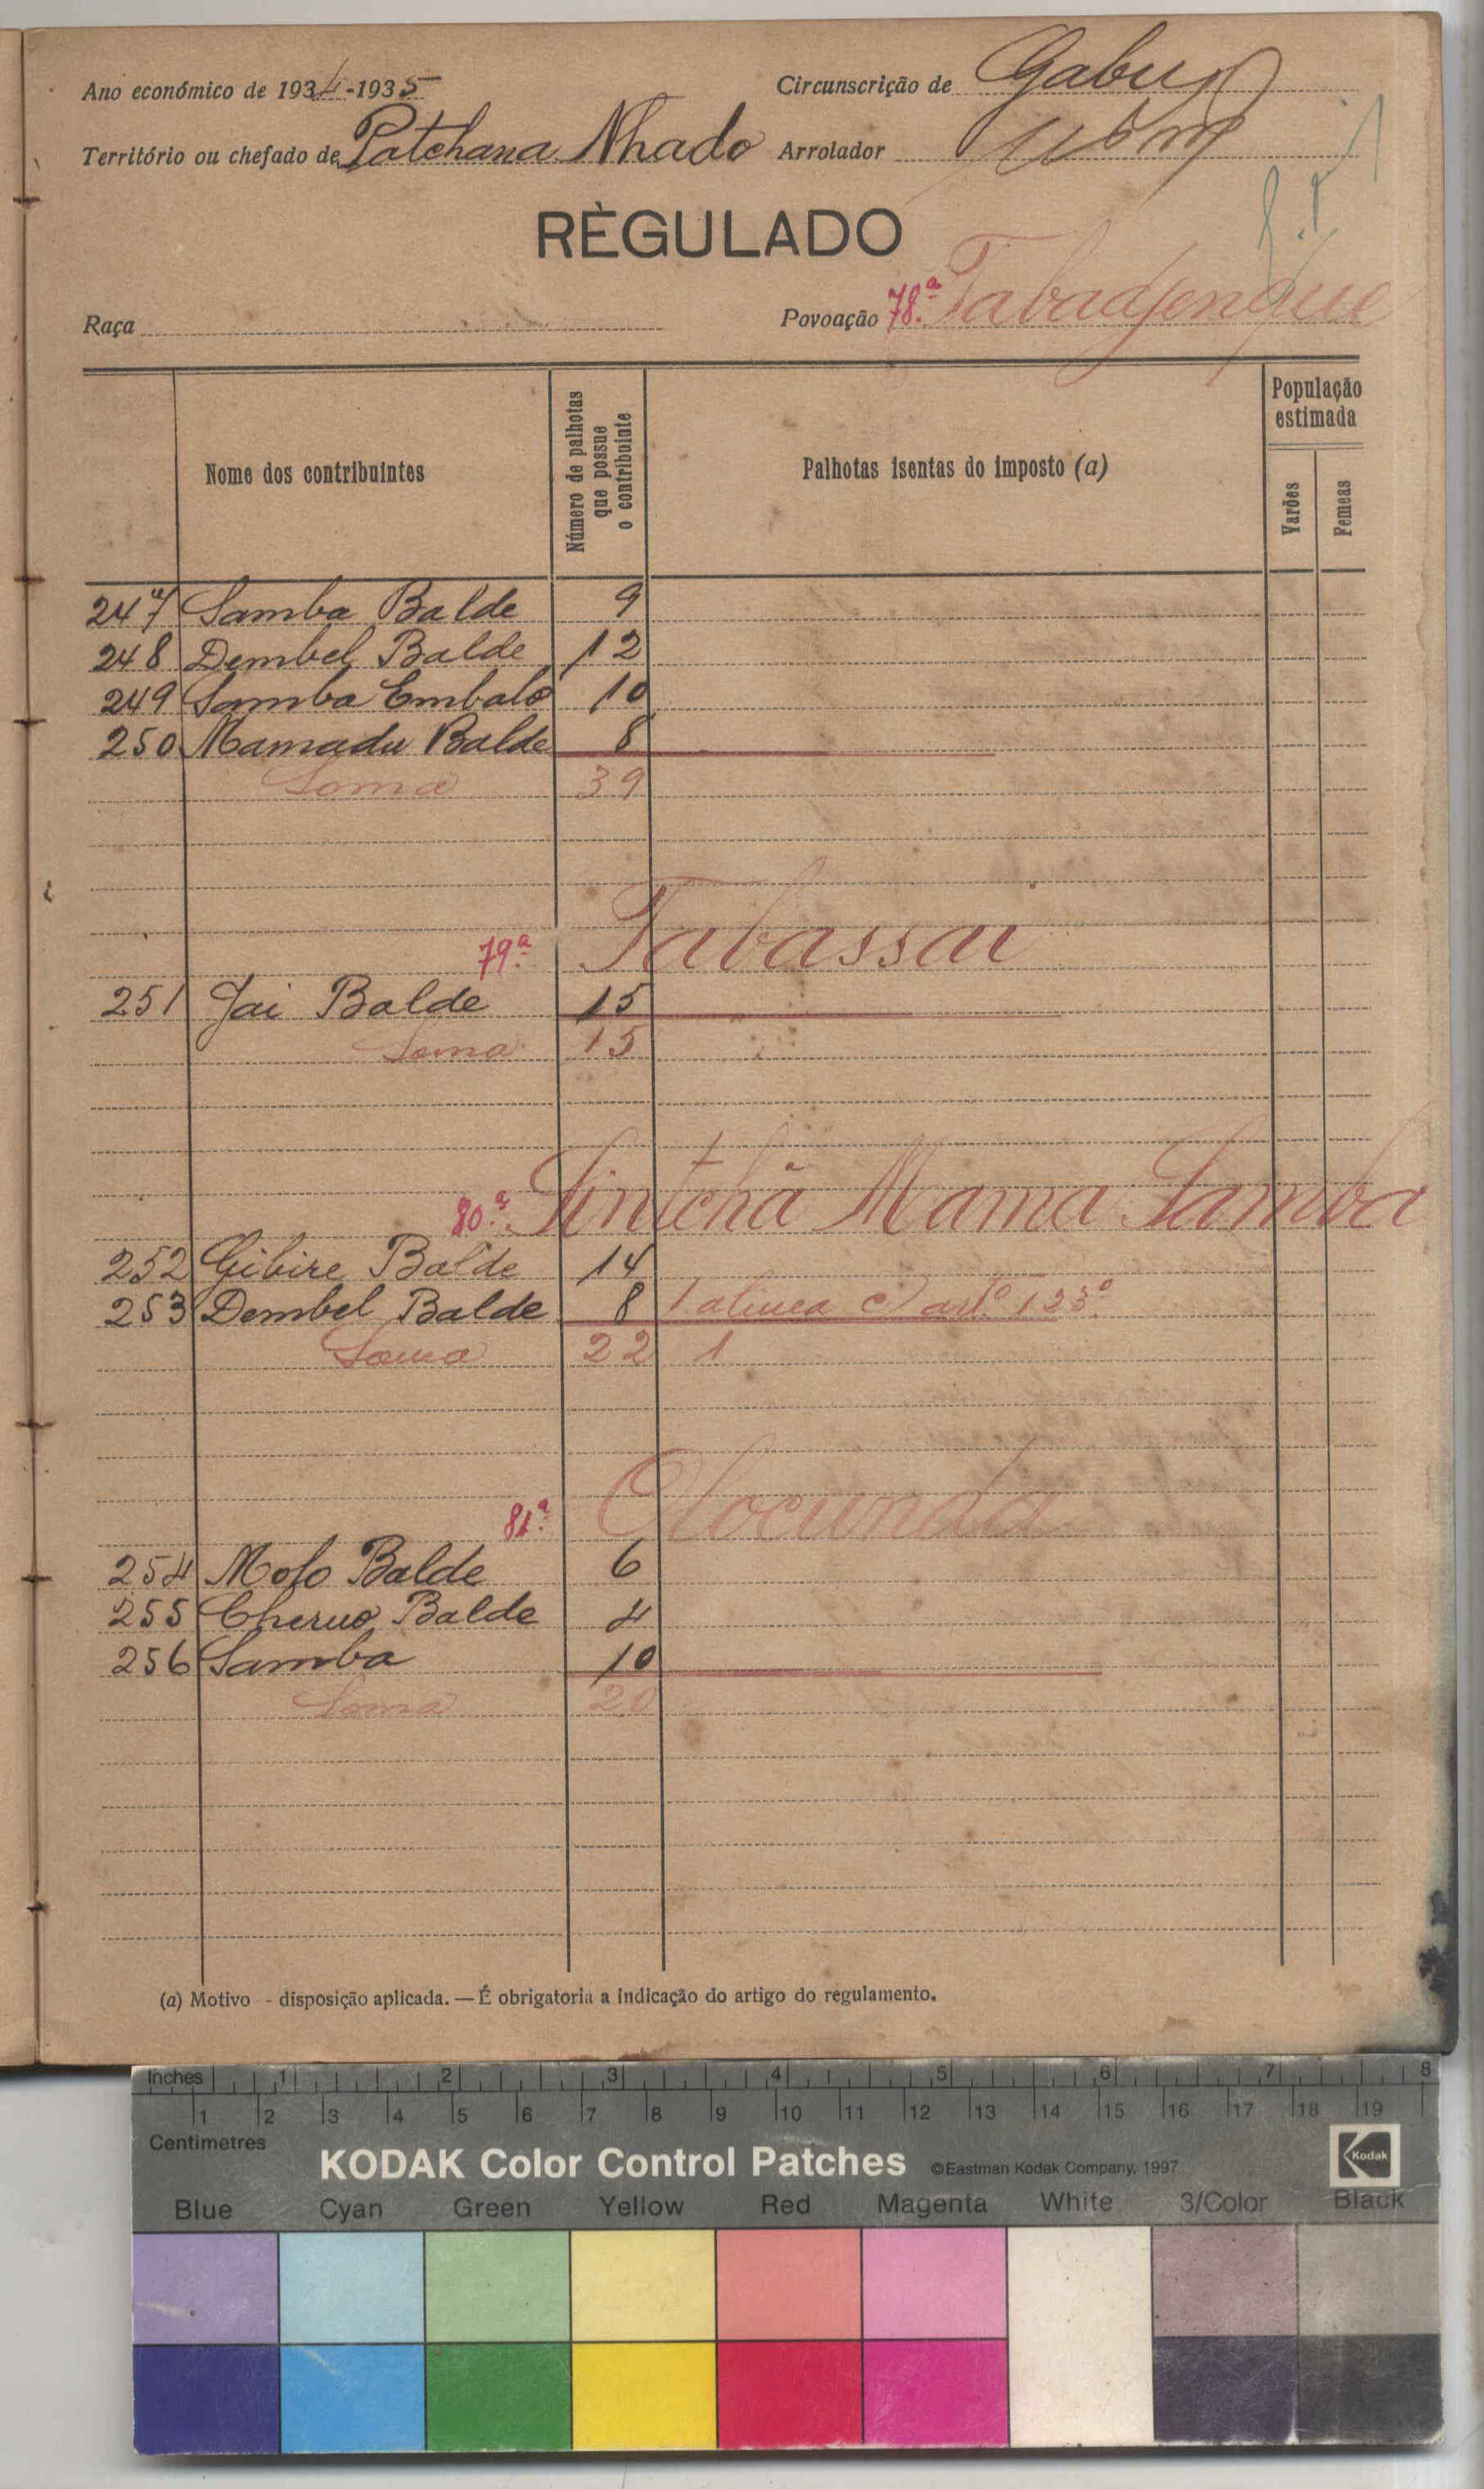 Ano económico de 1934-1935
Circunscrição de Gabu
Território ou chefado de Patchana Nhado Arrolador
RÈGULADO
Raça
Povoação 78.ª Tabadjenque
Nome dos contribuintes
Número de palhotas que possue o contribuinte
Palhotas isentas do imposto (a)
População estimada
Varões
Femeas
247 Samba Balde 9
248 Dembel Balde 12
249 Samba Embaló 10
250 Mamadu Balde 8
Soma 39
79.ª Tabassai
251 Jai Balde 15
Soma 15
80.ª Sintchã Mama Samba
252 Gibire Balde 14
253 Dembel Balde 8 1 alinea c) artº 123º
Soma 22 1
81.ª Olocunda
254 Molo Balde 6
255 Cherno Balde 4
256 Samba 10
Soma 20
(a) Motivo - disposição aplicada. — É obrigatoria a indicação do artigo do regulamento.
Inches 1 2 3 4 5 6 7 8
1 2 3 4 5 6 7 8 9 10 11 12 13 14 15 16 17 18 19
Centimetres
KODAK Color Control Patches ©Eastman Kodak Company, 1997 Kodak
Blue Cyan Green Yellow Red Magenta White 3/Color Black